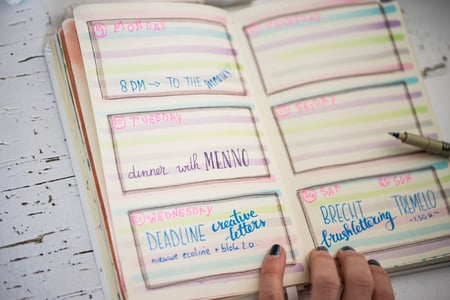 MONDAY
8 PM → TO THE MOVIES
20 TUESDAY
dinner with MENNO
21 WEDNESDAY
DEADLINE creative
letters
nieuwe ecoline + blok 2.0
FRIDAY
SAT
BRECHT
brushlettering
SUN
TREMELO